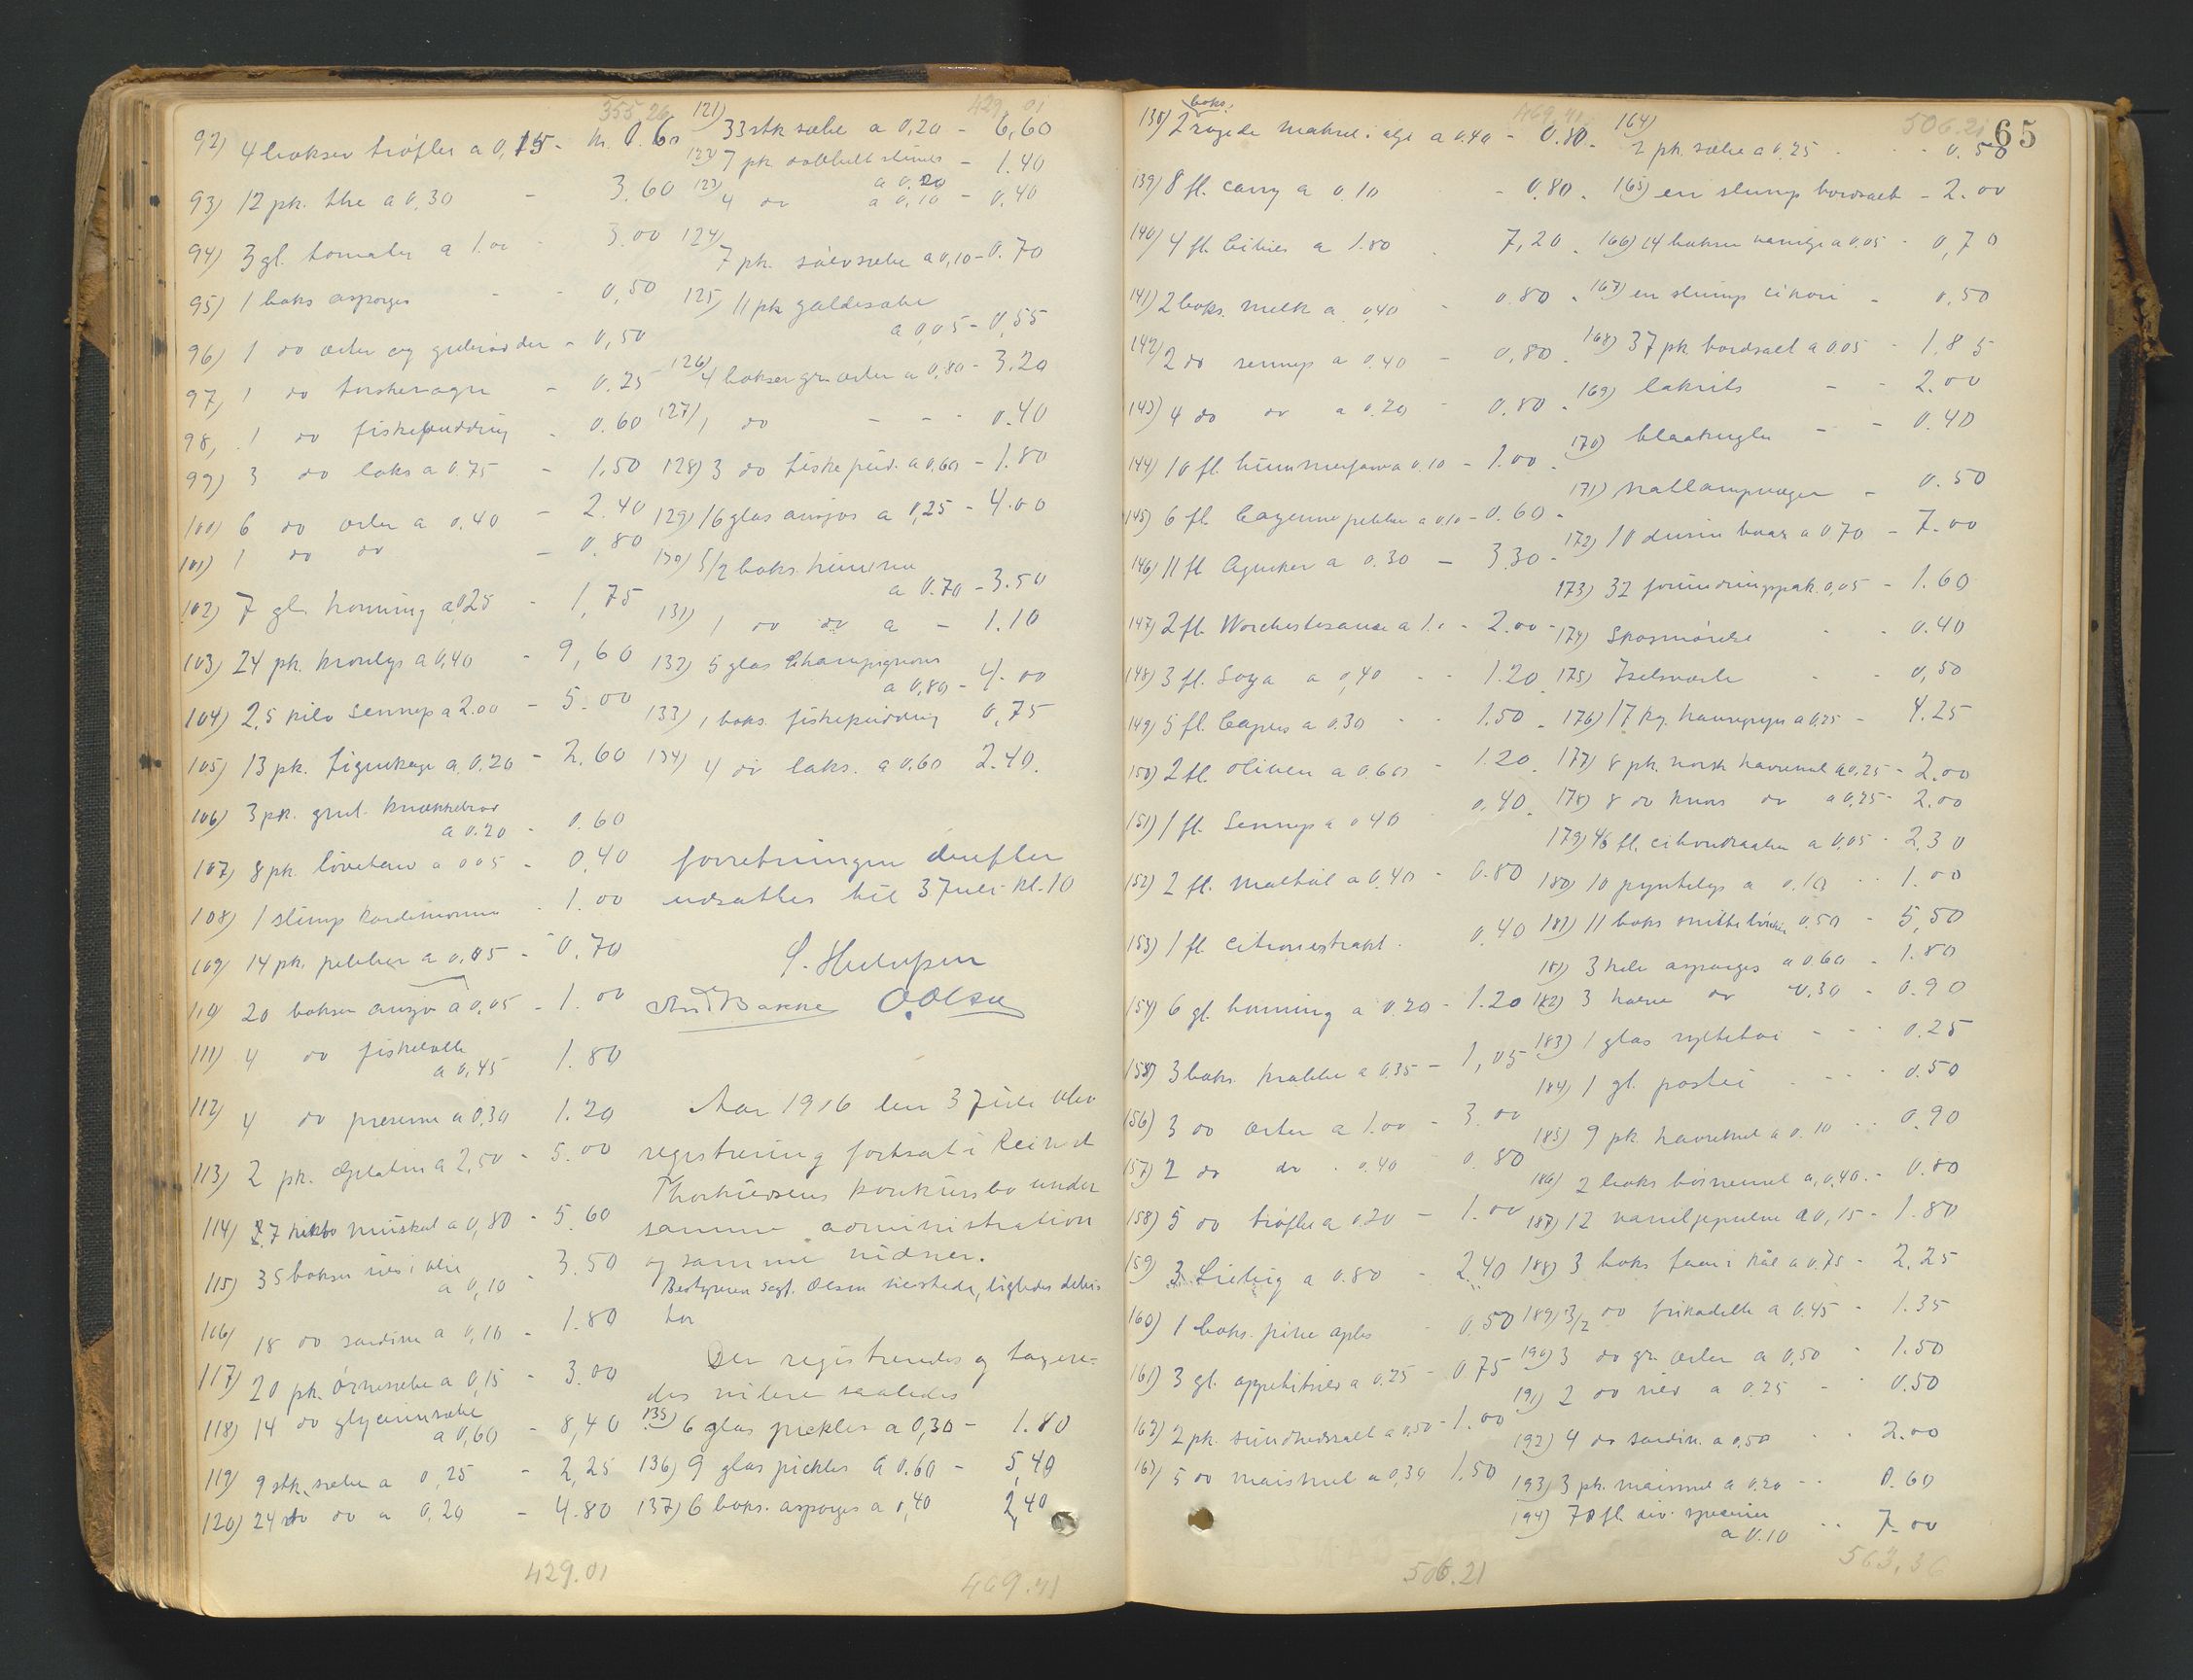 355.26
92) 4 bokser trøfler a 0,15 - kr. 0.60
93) 12 pk. the a 0,30 - 3.60
94) 3 gl. tomater a 1.00 - 3.00
95) 1 boks asparges - - 0,50
96) 1 do erter og gulerødder - 0,50
97) 1 do torskerogn - 0.25
98) 1 do fiskepudding - 0.60
99) 3 do laks a 0.75 - 1,50
100) 6 do erter a 0,40 - 2.40
101) 1 do do - 0.80
102) 7 gl. honning a 0,25 - 1,75
103) 24 pk. kronlys a 0,40 - 9,60
104) 2,5 kilo Sennep a 2.00 - 5.00
105) 13 pk. figenkage a 0.20 - 2.60
106) 3 pk. knækkebrød
a 0.20 - 0.60
107) 8 pk. a 0.05 - 0,40
108) 1 slump kardemomme - 1.00
109) 14 pk. pebber a 0.05 - 0.70
110) 20 bokser ansjos a 0,05 - 1.00
111) 4 do fiskeboller
a 0,45 1.80
112) 4 do a 0.30 1.20
113) 2 pk. Gelatin a 2,50 - 5.00
114) 7 muskat a 0,80 - 5.60
115) 35 bokser i olie
a 0,10 - 3.50
116) 18 do sardiner a 0,10 - 1.80
117) 20 pk. a 0,15 - 3.00
118) 14 do glycerinsæbe
a 0,60 - 8,40
119) 9 stk. sæbe a 0,25 - 2,25
120) 24 do a 0,20 - 4.80
429.01
429.01
121) 33 stk sæbe a 0,20 - 6,60
122) 7 pk dobbelt
a 0.20 - 1.40
123) 4 do a 0,10 - 0,40
124) 7 pk. sølvsæbe a 0,10 - 0.70
125) 11 pk galdesæbe
a 0,05 - 0,55
126) 4 bokser gr. erter a 0,80 - 3.20
127) 1 do - - - 0.40
128) 3 do fiskepud. a 0.60 - 1.80
129) 16 glas ansjos a 0,25 - 4.00
130) 5/2 boks hummer
a 0.70 - 3.50
131) 1 do do a - 1.10
132) 5 glas Champignons
a 0,80 - 4.00
133) 1 boks. fiskepudding 0,75
134) 4 do laks. a 0.60 2.40.
forretningen derefter
udsattes til 3 Juli kl. 10
And Bakke O. Olsen
Aar 1916 den 3 Juli blev
registrering fortsat i Reinet
konkursbo under
samme administration
og samme vidner.
Bestyreren Sagf. Olsen tilstede, ligeledes debi-
tor
Der registreredes og takere-
des videre saaledes
135) 6 glas pickles a 0,30 - 1.80
136) 9 glas pickles a 0.60 - 5,40
137) 6 boks. asparges a 0,40 2,40
469.41
469.41
boks.
138) 2 røgede makrel i olje a 0.40 - 0.80.
139) 8 fl. carry a 0.10 - 0.80.
140) 4 fl. a 1.80 7,20.
141) 2 boks. melk a 0,40 - 0.80
142) 2 do sennep a 0.40 - 0,80.
143) 4 do do a 0.20 - 0,80.
144) 10 fl. a 0.10 - 1.00.
145) 6 fl. Cayennepebber a 0.10 - 0.60.
146) 11 fl Agurker a 0.30 - 3.30
147) 2 fl. Worchestersauce a 1.- - 2.00
148) 3 fl. Soya a 0,40 - - 1.20
149) 5 fl. Capers a 0.30 - - 1.50
150) 2 fl. oliven a 0.60 - 1.20
151) 1 fl. Sennep a 0 40 0.40
152) 2 fl. Maltøl a 0.40 - 0.80
153) 1 fl. Citronextrakt. 0,40
154) 6 gl. honning a 0.20 - 1.20
155) 3 boks. krabber a 0.35 - 1,05
156) 3 do erter a 1.00 - 3.00
157) 2 do do - 0.40 0.80
158) 5 do trøfler a 0.20 - 1.00
159) 3 Liebig a 0.80 - 2.40
160) 1 boks. pine aples - 0.50
161) 3 gl. appetitsild a 0.25 - 0.75
162) 2 pk. sundhedssalt a 0,50 - 1.00
163) 5 do maismel a 0,30 1.50
506.21
506.21
65
164) 2 pk. sæbe a 0.25 - - - 0.50
165) en slump bordsalt - 2.00
166) 14 bokser a 0.05 - 0,70
167) en slump cikori - 0,50
168) 37 pk bordsalt a 0.05 - 1.85
169) lakrits - - 2.00
170) blaakugler - - 0.40
171) natlampvæger - 0.50
172) 10 dusin a 0.70 - 7.00
173) 32 a 0,05 - 1.60
174) Skosmørelse - - 0.40
175) - - 0,50
176) 17 kg. havregryn a 0.25 - 4.25
177) 8 pk. norsk havremel a 0.25 - 2.00
178) 8 do knors do a 0,25 - 2.00
179) 46 fl. citrondraaber a 0,05 - 2,30
180) 10 pyntelys a 0.10 - - 1.00
181) 11 boks snittebønner 0.50 - 5,50
181) 3 hele asparges a 0.60 - 1.80
182) 3 halve do a 0,30 - 0.90
183) 1 glas syltetøi - - - 0.25
184) 1 gl. postei - - - 0.50
185) 9 pk. havremel a 0.10 - - 0.90
186) 2 boks børnemel a 0,40 - 0.80
187) 12 vaniljepulver a 0,15 - 1.80
188) 3 boks faar i kål a 0.75 - 2.25
189) 3/2 do frikadeller a 0.45 - 1.35
190) 3 do gr. erter a 0,50 - 1.50
191) 2 do sild a 0.25 - - 0.50
192) 4 do sardin. a 0,50 - - 2.00
193) 3 pk. maismel a 0.20 - - 0.60
194) 70 fl. div. specerier
a 0.10 - - 7.00
563,36